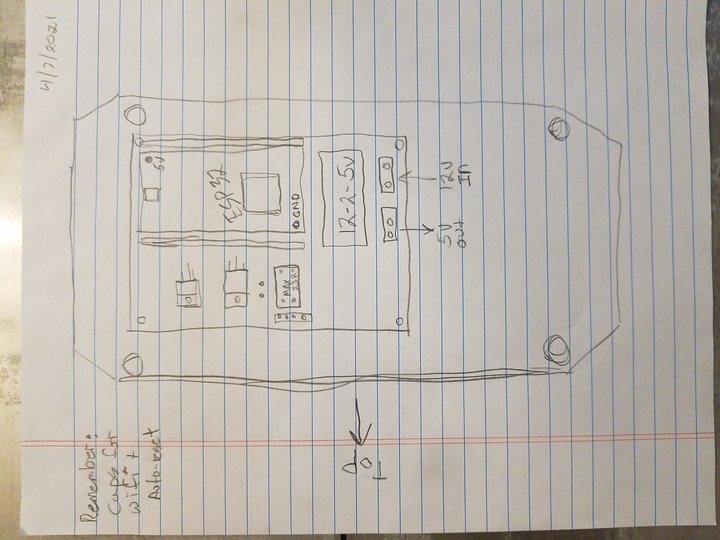 4/7/2021
5V
ESP32
GND
12-2-5V
12V
In
5V
out
MAX
232
Remember:
Caps for
wifi +
Auto-reset
TOP